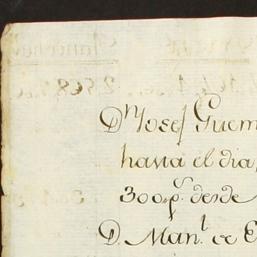 Dn Josef Guem
hasta el dia,
300 ps. desde
D. Manl. de E